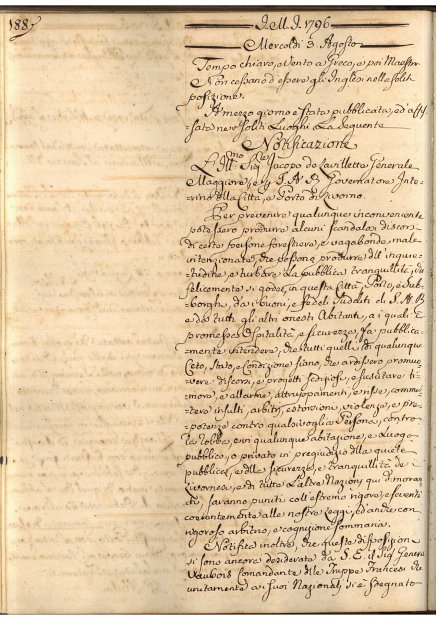 188
I. M. I. 1796
Mercoldì 3. Agosto
Tempo chiaro, e Vento a Greco, e poi Maestro
Non cessano d'essere gli Inglesi nelle solite
posizione.
A mezzo giorno è stata pubblicata, ed affis
sata ne soliti Luoghi La Sequente
Notificazione
L'Illmo Sig Jacopo de Lavilletta Generale
Maggiore, e S. A. R. Governatore Inte=
rino della Città, e Porto di Livorno.
Per prevenire qualunque inconveniente
potessero produrre alcuni scandalosi discor=
si di certe persone forestiere, e vagabonde male=
intenzionate, che possono produrre dell'inquie=
titudine e turbare La pubblica tranquillità, che
felicemente si gode, in questa Città, Porto, e Sub=
borghi, da i buoni, e fedeli Sudditi di S. A. R.
e da tutti gli altri onesti Abitanti, a i quali È
promessa Ospitalità, e sicurezza, fa pubblica=
mente intendere, che tutti quelli di qualunque
Ceto, Stato, e Condizione siano, che ardissero promuo=
vere discorsi, e progetti sediziosi, e suscitare ti=
more, e allarme, attruppamenti, e risse, comme=
tere insulti, arbitrj, estorsioni, violenze, e pre=
potenze contro qualsivoglia Persona, contro
La robba, e in qualunque abitazione, e Luogo
pubblico, o privato in pregiudizio della quiete
pubblica, e della sicurezza, e tranquillità de
Livornesi, e di tutte L'altre Nazioni qui dimoran
ti, saranno puniti coll'estremo rigore, e
coerentemente alle nostre Leggi, ed anche con
rigoroso arbitrio, e cognizione sommaria.
Notifica inoltre, che queste disposizioni
si sono ancora desiderate da S. E. il Sig. Generale
Vaubois Comandante delle Truppe Francesi che
unitamente a i suoi Nazionali si è degnato